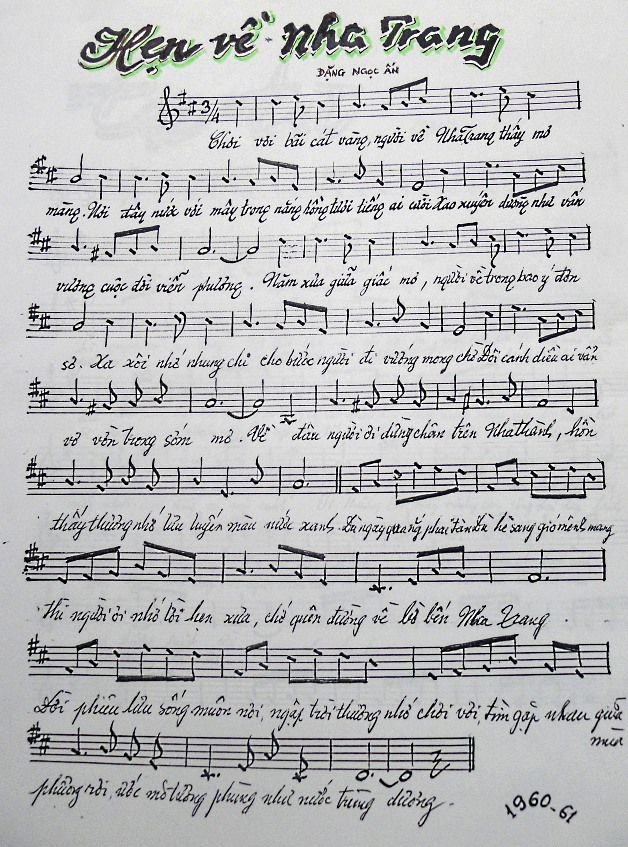 Hẹn về Nha Trang
ĐẶNG NGỌC ẤN
3/4
Chơi vơi bãi cát vàng, người về Nha Trang thấy mơ
màng. Nơi đây nước với mây trong nắng hồng tươi tiếng ai cười Xao xuyến dường như vấn
vương cuộc đời viễn phương. Năm xưa giữa giấc mơ, người về trong bao ý đơn
sơ. Xa xôi nhớ nhung chi cho bước người đi vướng mong chờ Đôi cánh diều ai vẩn
vơ vờn trong sóng mơ. Về đâu người ơi dừng chân trên Nha thành, hồn
thấy thương nhớ lưu luyến màu nước xanh. Dù ngày quang phai tàn Dù hè sang gió mênh mang
thì người ơi nhớ lời hẹn xưa, chớ quên đường về bờ bến Nha Trang.
Đời phiêu lưu sống muôn nơi, ngập trời thương nhớ chơi vơi, tìm gặp nhau giữa
mùa
phượng rơi, ước mơ tương phùng như nước trùng dương.
1960-61